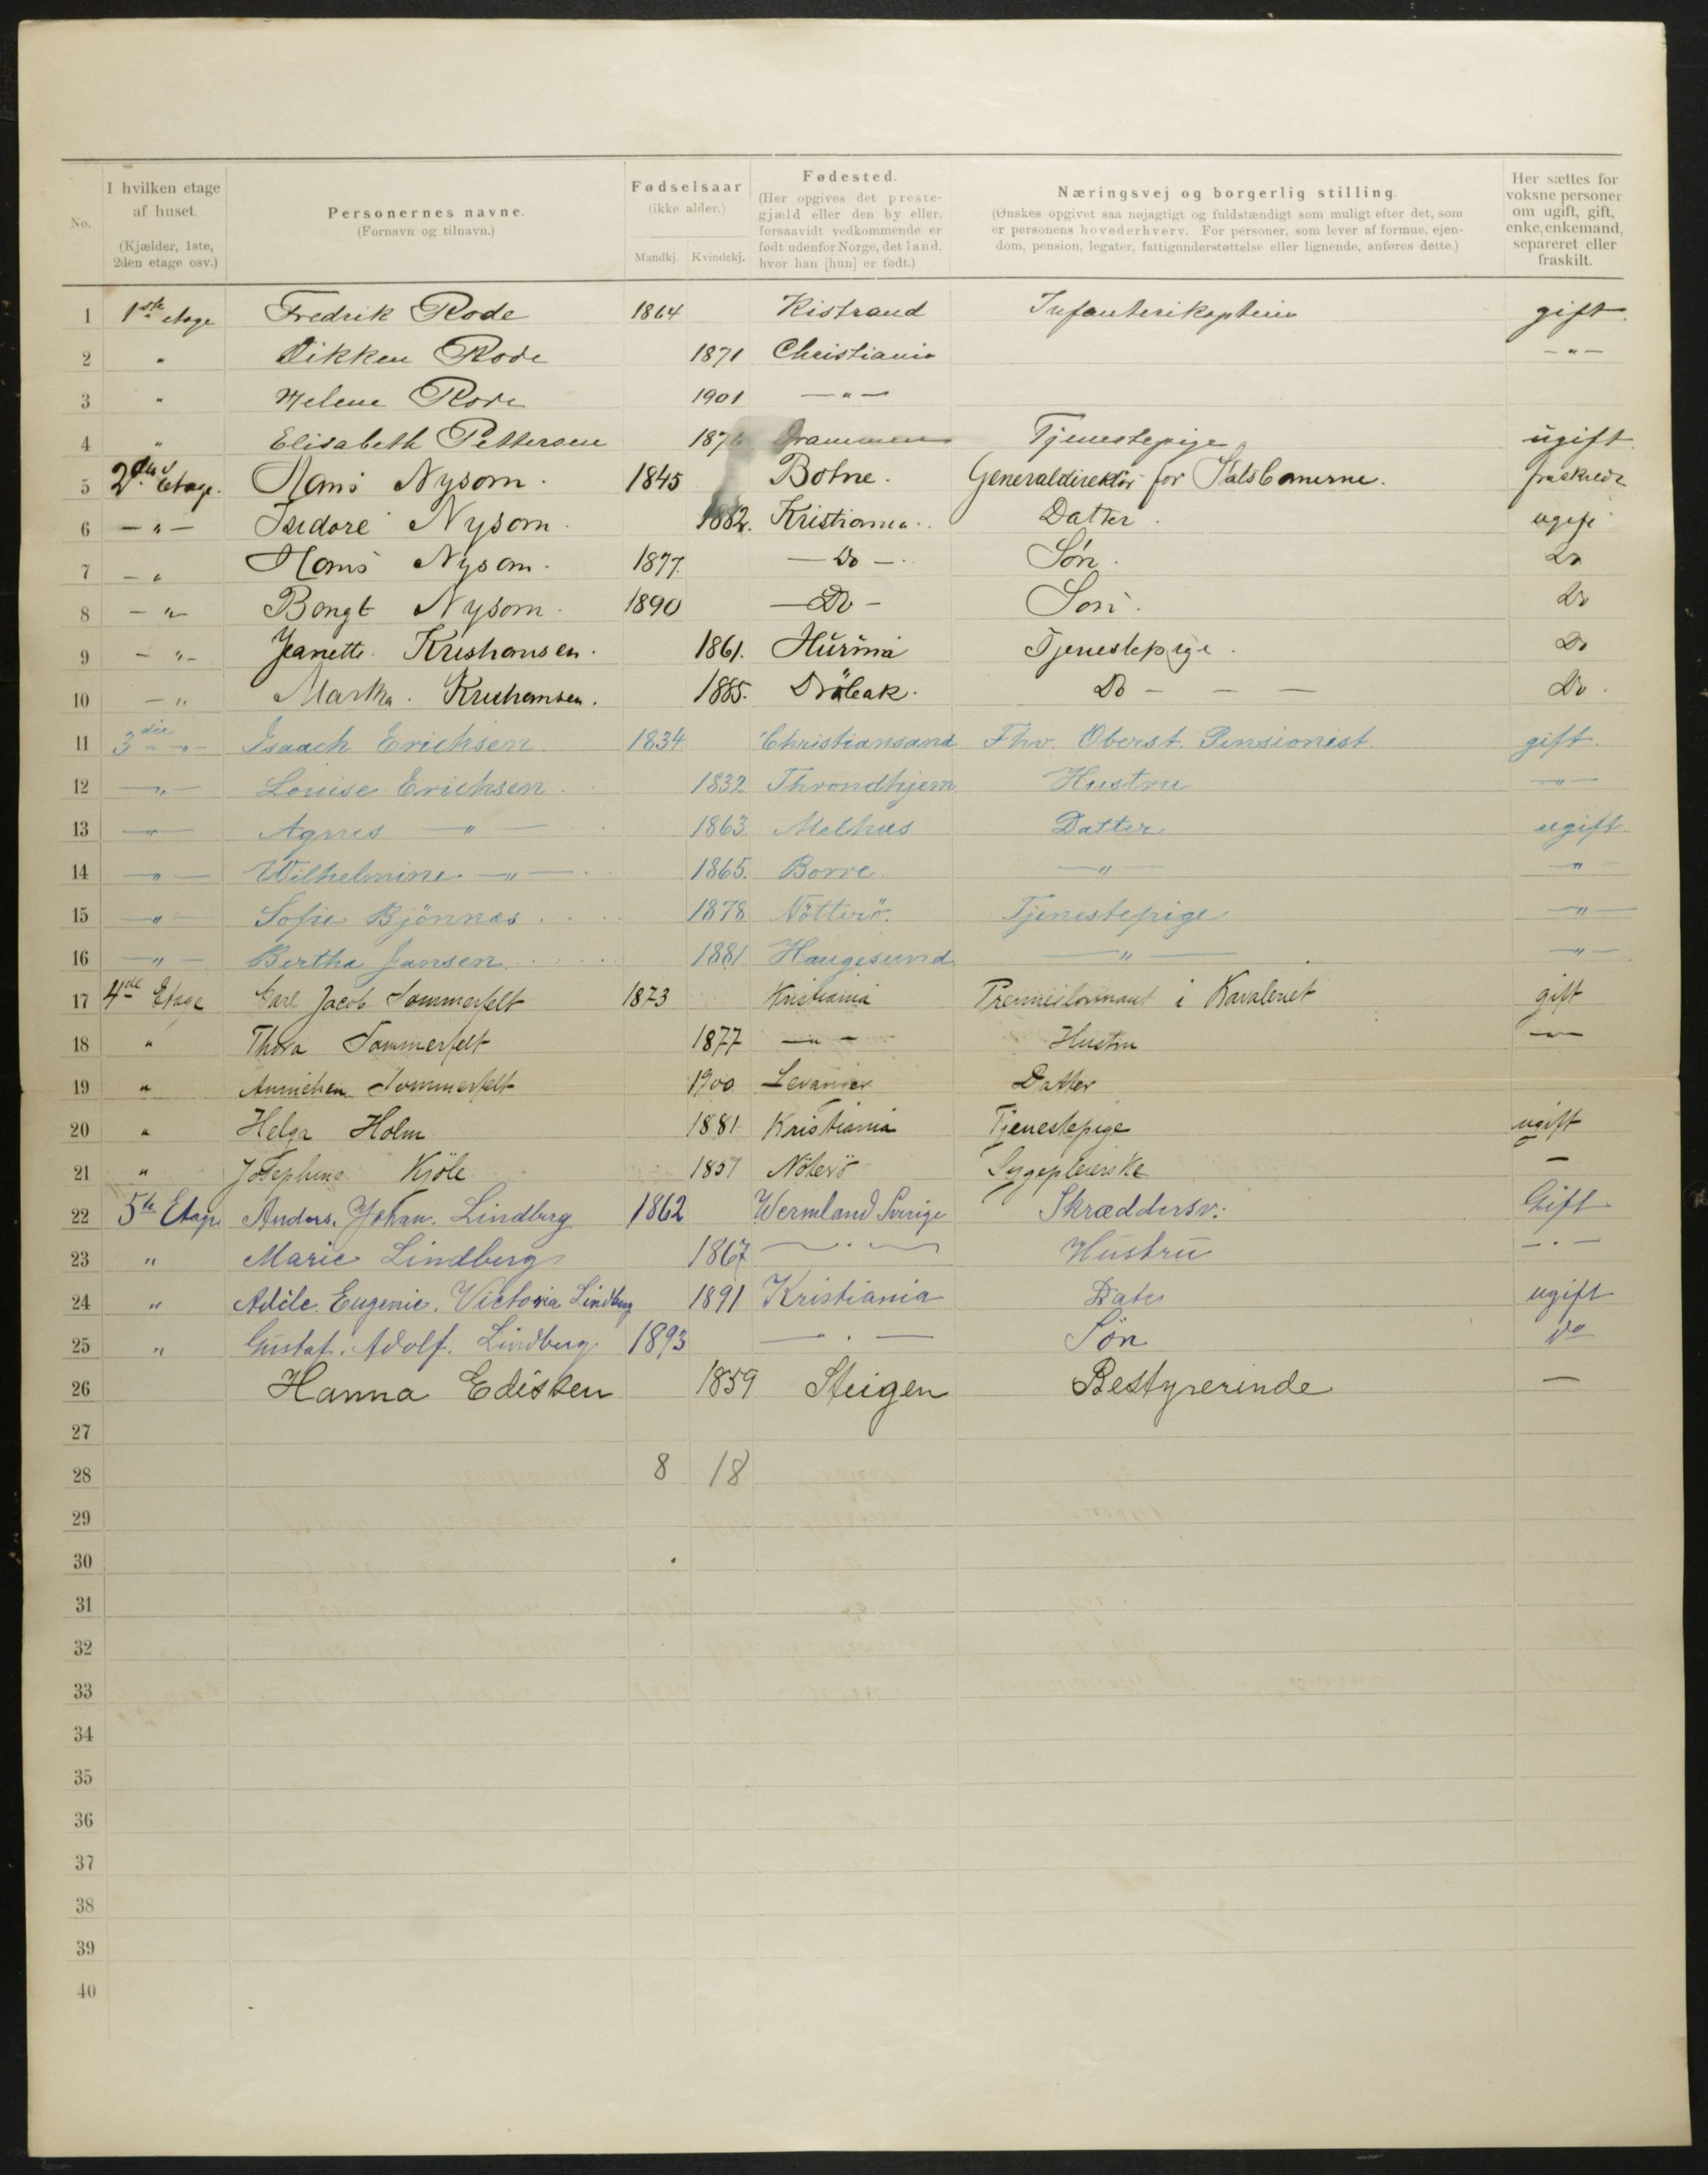 No.
I hvilken etage af huset. (Kjælder, 1ste, 2den etage osv.)
Personernes navne. (Fornavn og tilnavn.)
Fødselsaar (ikke alder.) Mandkj. Kvindekj.
Fødested. (Her opgives det prestegjæld eller den by eller, forsaavidt vedkommende er født udenfor Norge, det land, hvor han [hun] er født.)
Næringsvej og borgerlig stilling. (Ønskes opgivet saa nøjagtigt og fuldstændigt som muligt efter det, som er personens hovederhverv. For personer, som lever af formue, ejendom, pension, legater, fattigunderstøttelse eller lignende, anføres dette.)
Her sættes for voksne personer om ugift, gift, enke, enkemand, separeret eller fraskilt.
1 1ste etage Fredrik Rode 1864 Kistrand Infanterikaptein gift.
2 " Dikken Rode 1871 Christiania - " -
3 " Helene Rode 1901 - " -
4 " Elisabeth Pettersen Drammen Tjenestepige ugift
5 2den Etage. Hans Nysom. 1845 Botne. Generaldirektör for Statsbanerne.
6 - " - Isidore Nysom. 1882. Kristiania. Datter. ugift
7 - " Hans Nysom. 1877. - Do - Sön. Do
8 - " - Bengt Nysom. 1890 - Do - Sön. Do
9 - " - Jeanette. Kristiansen. 1861. Tjenestepige. Do
10 - " Martha. Kristiansen. 1885. Dröbak. Do - - - Do.
11 3die - " - Isaach Erichsen 1834 Christiansand Fhv. Oberst. Pensionist. gift.
12 - " - Louise Erichsen 1832 Throndhjem Hustru - " -
13 - " - Agnes - " - 1863. Melhus Datter ugift.
14 - " - Wilhelmine - " - 1865. Borre - " - - " -
15 - " - Sofie Bjönnæs 1878 Nötterö. Tjenestepige - " -
16 - " - Bertha Jansen 1881 Haugesund - " - - " -
17 4de Etage Carl Jacob Sommerfelt 1873 Kristiania Premierløitnant i Kavaleriet gift
18 " Thora Sommerfelt 1877 - " - Hustru - " -
19 " Annichen Sommerfelt 1900 Levanger Datter
20 " Helga Holm 1881 Kristiania Tjenestepige ugift
21 " Josephine Kjöle 1857 Nöterö Sygepleierske -
22 5te Etage Anders. Johan. Lindberg 1862 Wermland Sverige Skræddersv: Gift
23 " Marie Lindberg 1867 - " - Hustru - " -
24 " Adéle. Eugenie. Victoria Lindberg 1891 Kristiania Dater ugift
25 " Gustaf. Adolf. Lindberg 1893 - " - Sön do
26 Hanna Edisken 1859 Steigen Bestyrerinde -
27
28 8 18
29
30
31
32
33
34
35
36
37
38
39
40